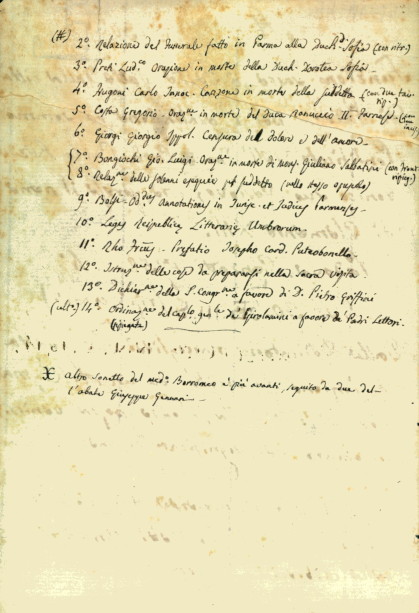 (#) 2º. Relazione del Funerale fatto in Parma alla Duch.ª Sofia (con ritr.)
3º. Preti Lud.co Orazione in morte della Duch. Dorotea Sofia.
4º. Frugoni Carlo Innoc. Canzone in morte della suddetta (con due
5º. Costa Gregorio. Oraz.ne in morte del Duca Ranuccio II. Farnese
6º. Giorgi Giorgio Ippol. Censura del dolore e dell'amore.
7º. Gio. Luigi Oraz.ne in morte di Mons. Giuliano Sabbatini (con
8º. Relaz.ne delle solenni esequie pel suddetto (nello stesso opuscolo)
9º. Annotationes in Jurisp. et Judices Parmenses.
10º. Leges Reipublicæ Literariæ Umbrorum.
11º. Rho Prefatio Josepho Card. Puteobonello.
12º. Istruz.ne delle cose da prepararsi nella sacra visita
13º. Dichiar.ne della S. Congr.ne a favore di D. Pietro Griffini
14º. Ordinaz.ne del cap.lo gen.le de' Girolamini a favore de' Padri Lettori.
(ripiegata)
X altro Sonetto del med.º Borromeo è più avanti, seguito da due del-
l'abate Giuseppe Gennari